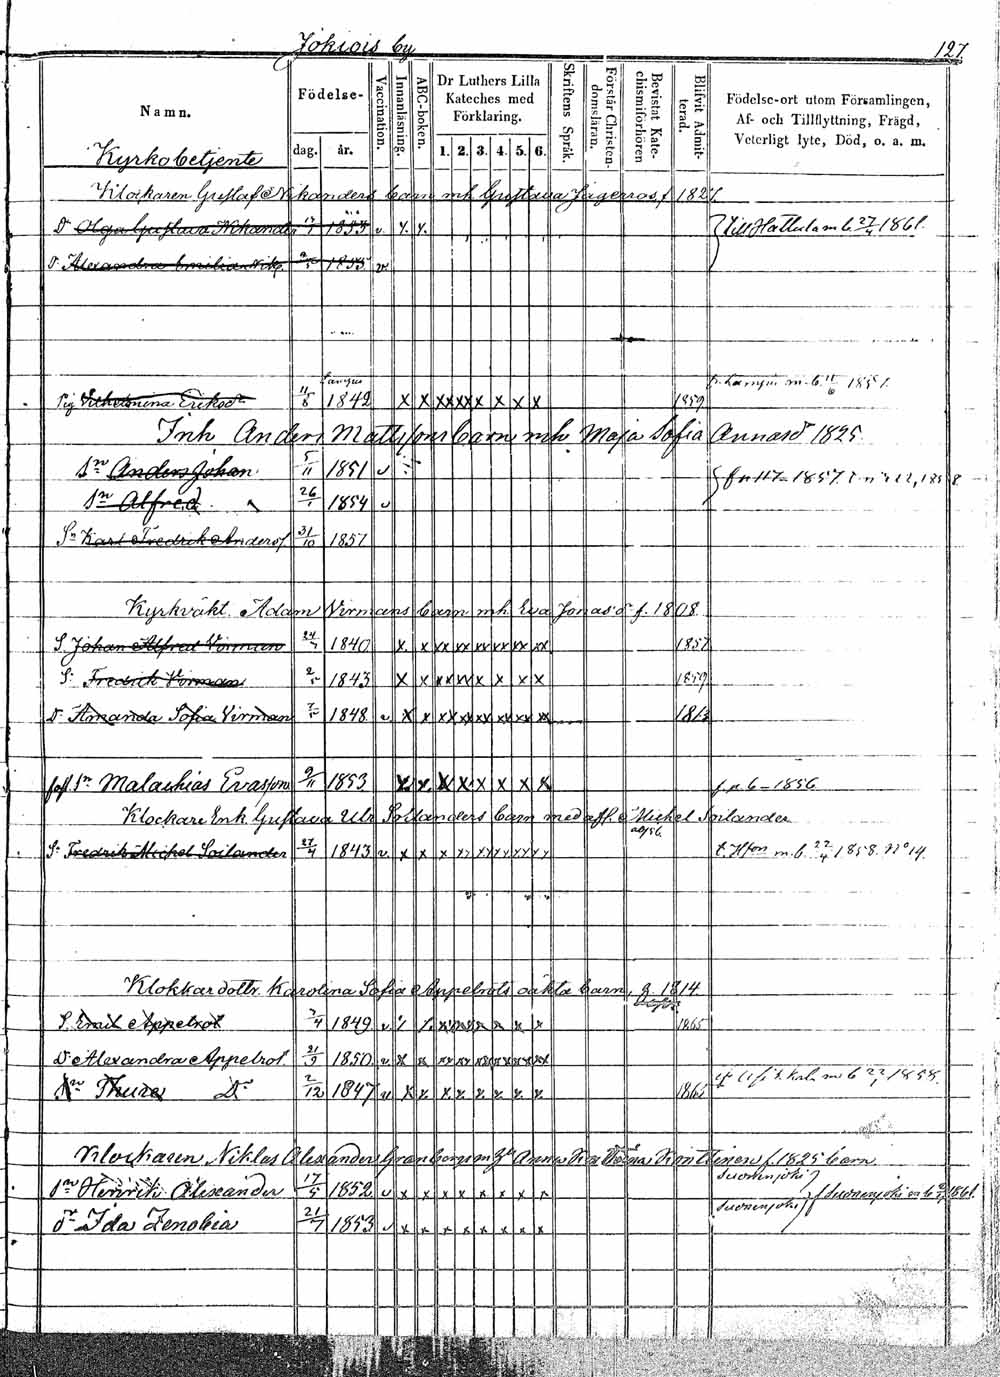 Jokiois by 127
Namn. Födelse- dag. år. Vaccination. Innanläsning. ABC-boken. Dr Luthers Lilla Kateches med Förklaring. 1. 2. 3. 4. 5. 6. Skriftens Språk. Förstår Christendomsläran. Bevistat Katechismiförhören Blifvit Admitterad. Födelse-ort utom Församlingen, Af- och Tillflyttning, Frägd, Veterligt lyte, Död, o. a. m.
Kyrkobetjente
Klockaren Gustaf Nikanders barn mh Gustava Jagerroos f. 1827.
Dr Olga Gustava Nikander 1853 v. Till Hattula m. b. 1861.
Dr Alexandra Emilia Nik. 1855 v.
Pig Vilhelmina Eriksdr 11/8 1842 x x xx xx x x x x 1859 m. b. 11/6 1857.
Inh Anders Mattssons barn mh Maja Sofia Annasdr 1825
Sn Anders Johan 5/11 1851 v
Sn Alfred 26/1 1854 v
Sn Karl Fredrik Anderss. 31/10 1857
Kyrkväkt. Adam Virmans barn mh Eva Jonasdr f. 1808.
S. Johan Alfred Virman 24/7 1840 x x xx xx xx xx xx xx 1857
S. Fredrik Virman 1843 x x xx xx x x x x 1859
Dr Amanda Sofia Virman 1848 v x x xx xx xx xx xx xx
Sn Malachias Evasson 9/11 1853 x x x x x x x x 6 - 1856
Klockare Enk. Gustava Ulr. Soilanders barn med afl. Michel Soilander
Sn Fredrik Michel Soilander 27/4 1843 v x x x xx xx xx xx m. b. 22/4 1858. No 14.
Klokkardottr. Karolina Sofia Appelrots oäkta barn, 1814
S. Emil Appelrot 3/4 1849 v x x x x x x 1865
Dr Alexandra Appelrot 21/9 1850 v x x xx xx xx xx xx xx
Sn Thure Dr 2/12 1847 v x x x x x x x x 1865 m b 1858.
Klockaren Niklas Alexander Granbergs m. Anna f. 1825 barn.
Sn Henrik Alexander 17/5 1852 v x x x x x x x x Suonenjoki Suonenjoki m b 1861
Dr Ida Zenobia 21/7 1853 v x x x x x x x x Suonenjoki